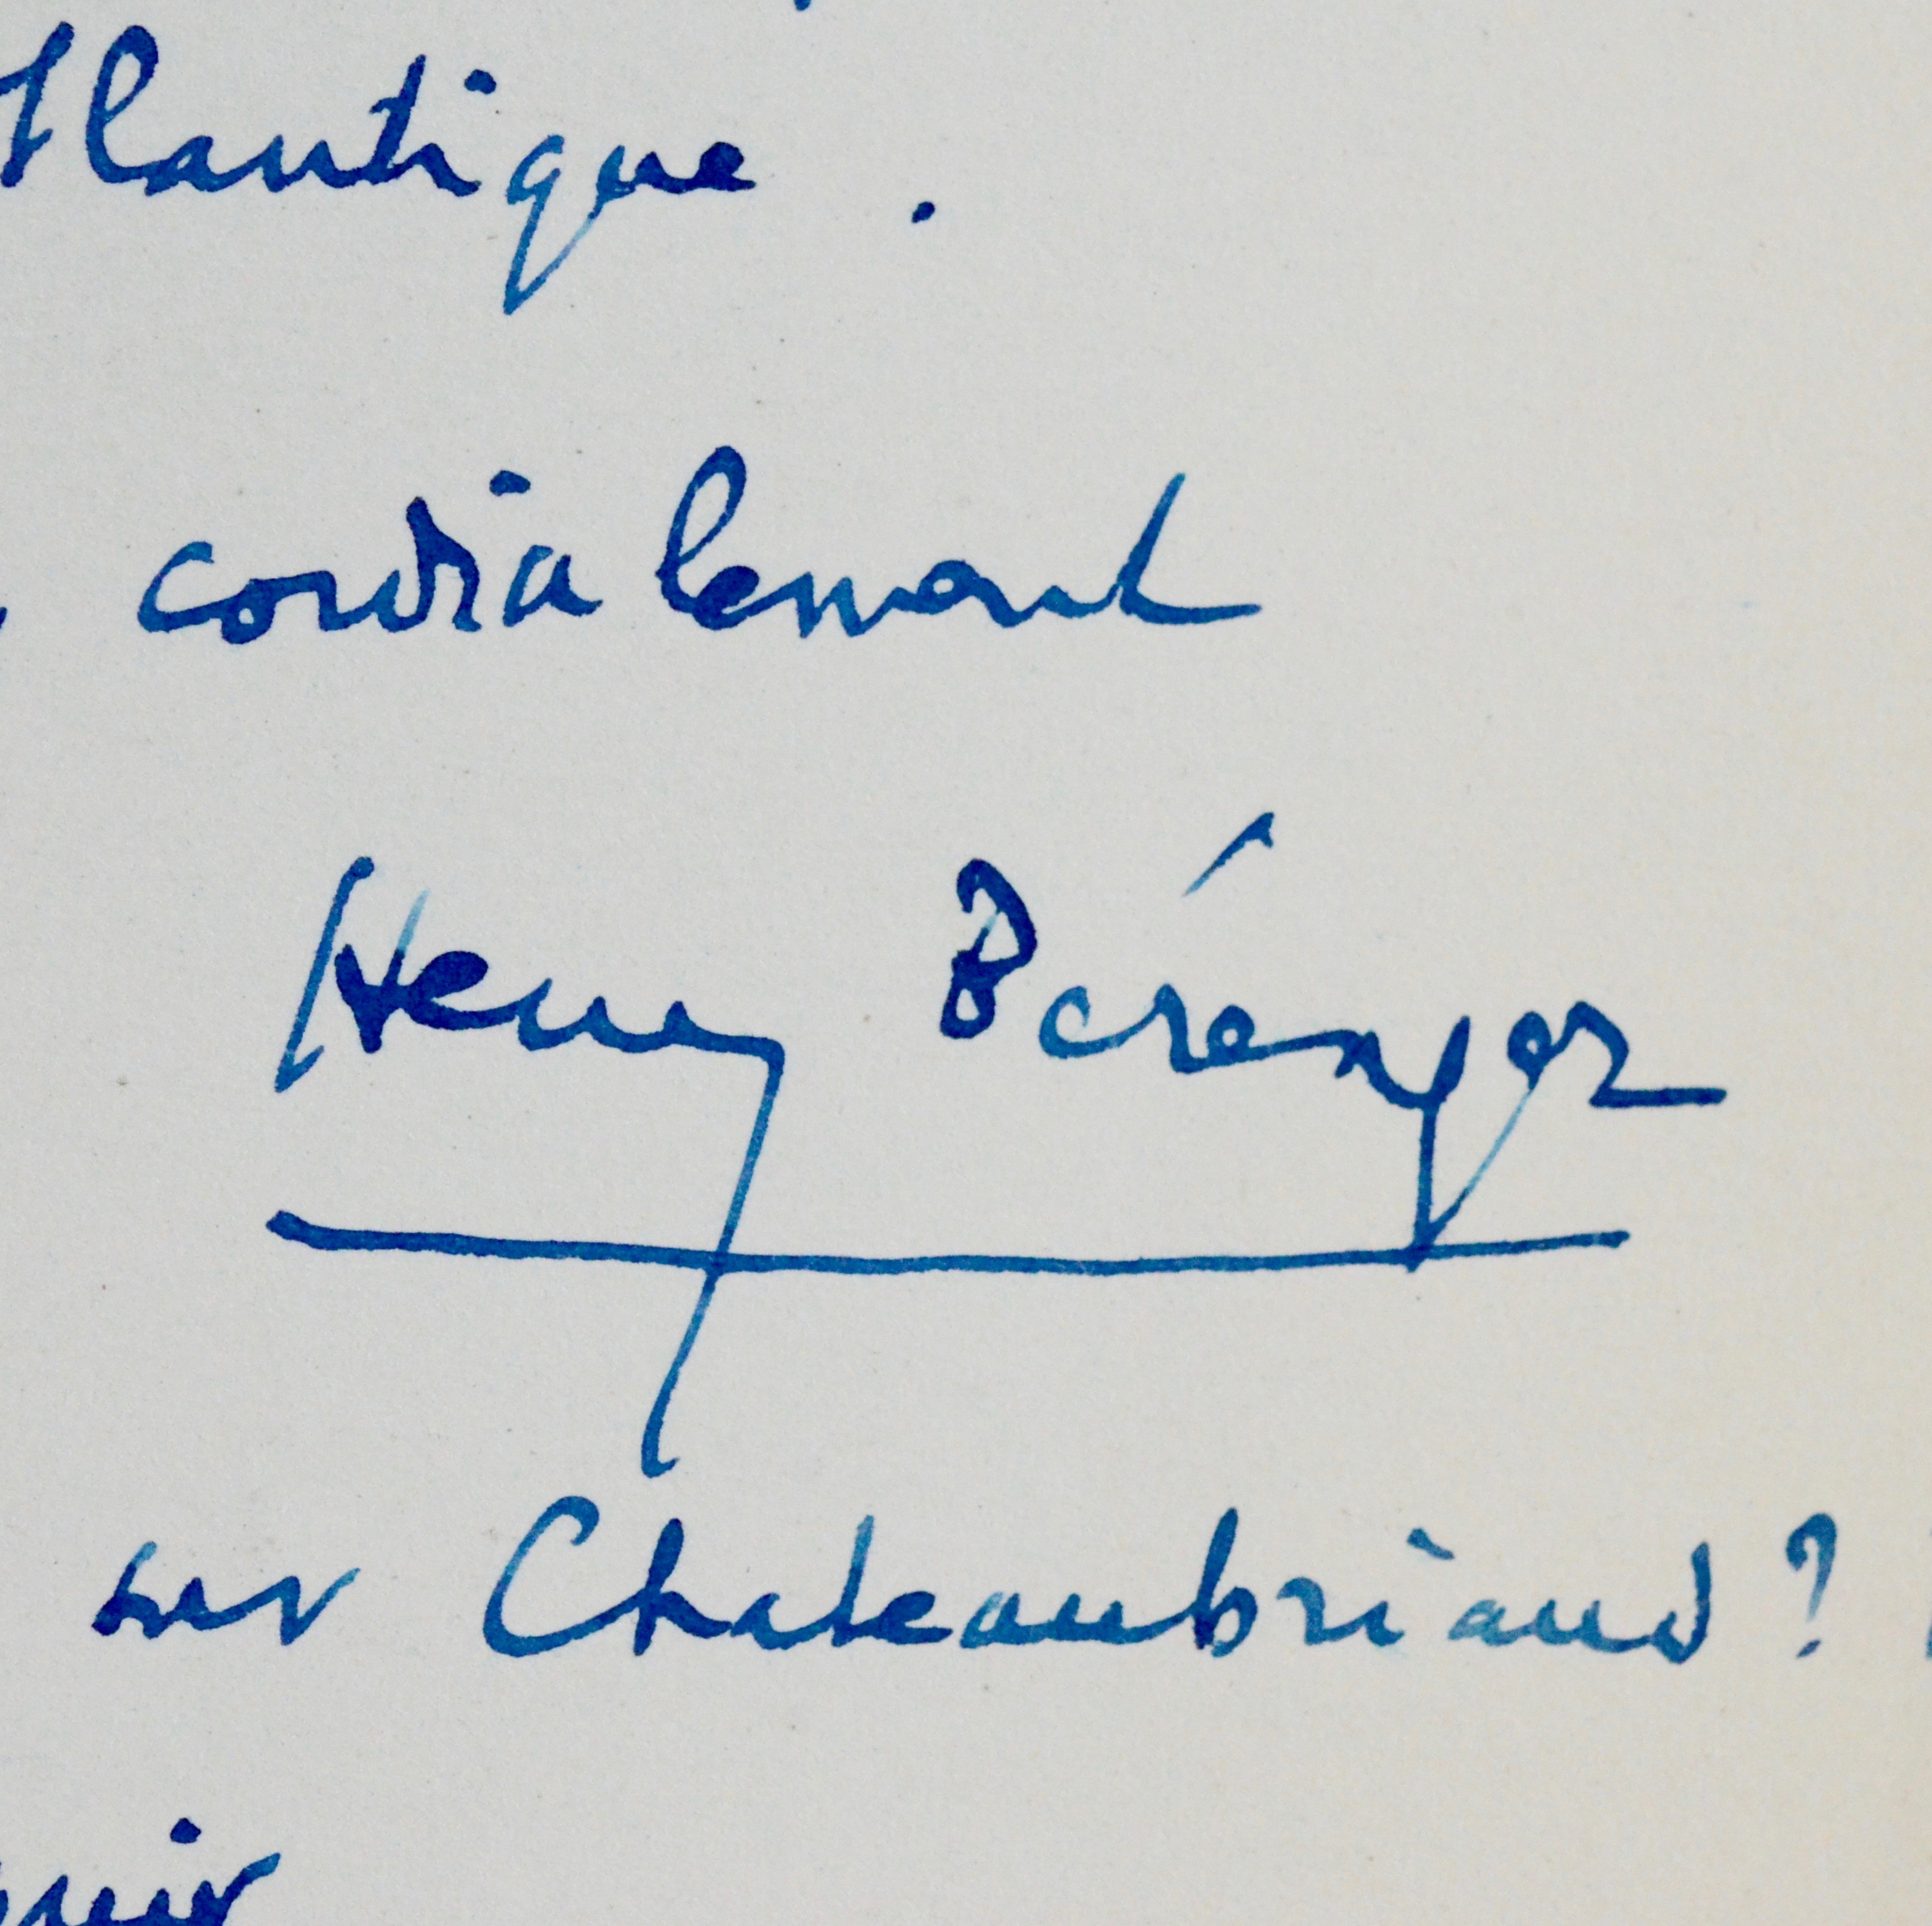 tlantique .
cordialement
Henry Bérenger
sur Chateaubriand ?